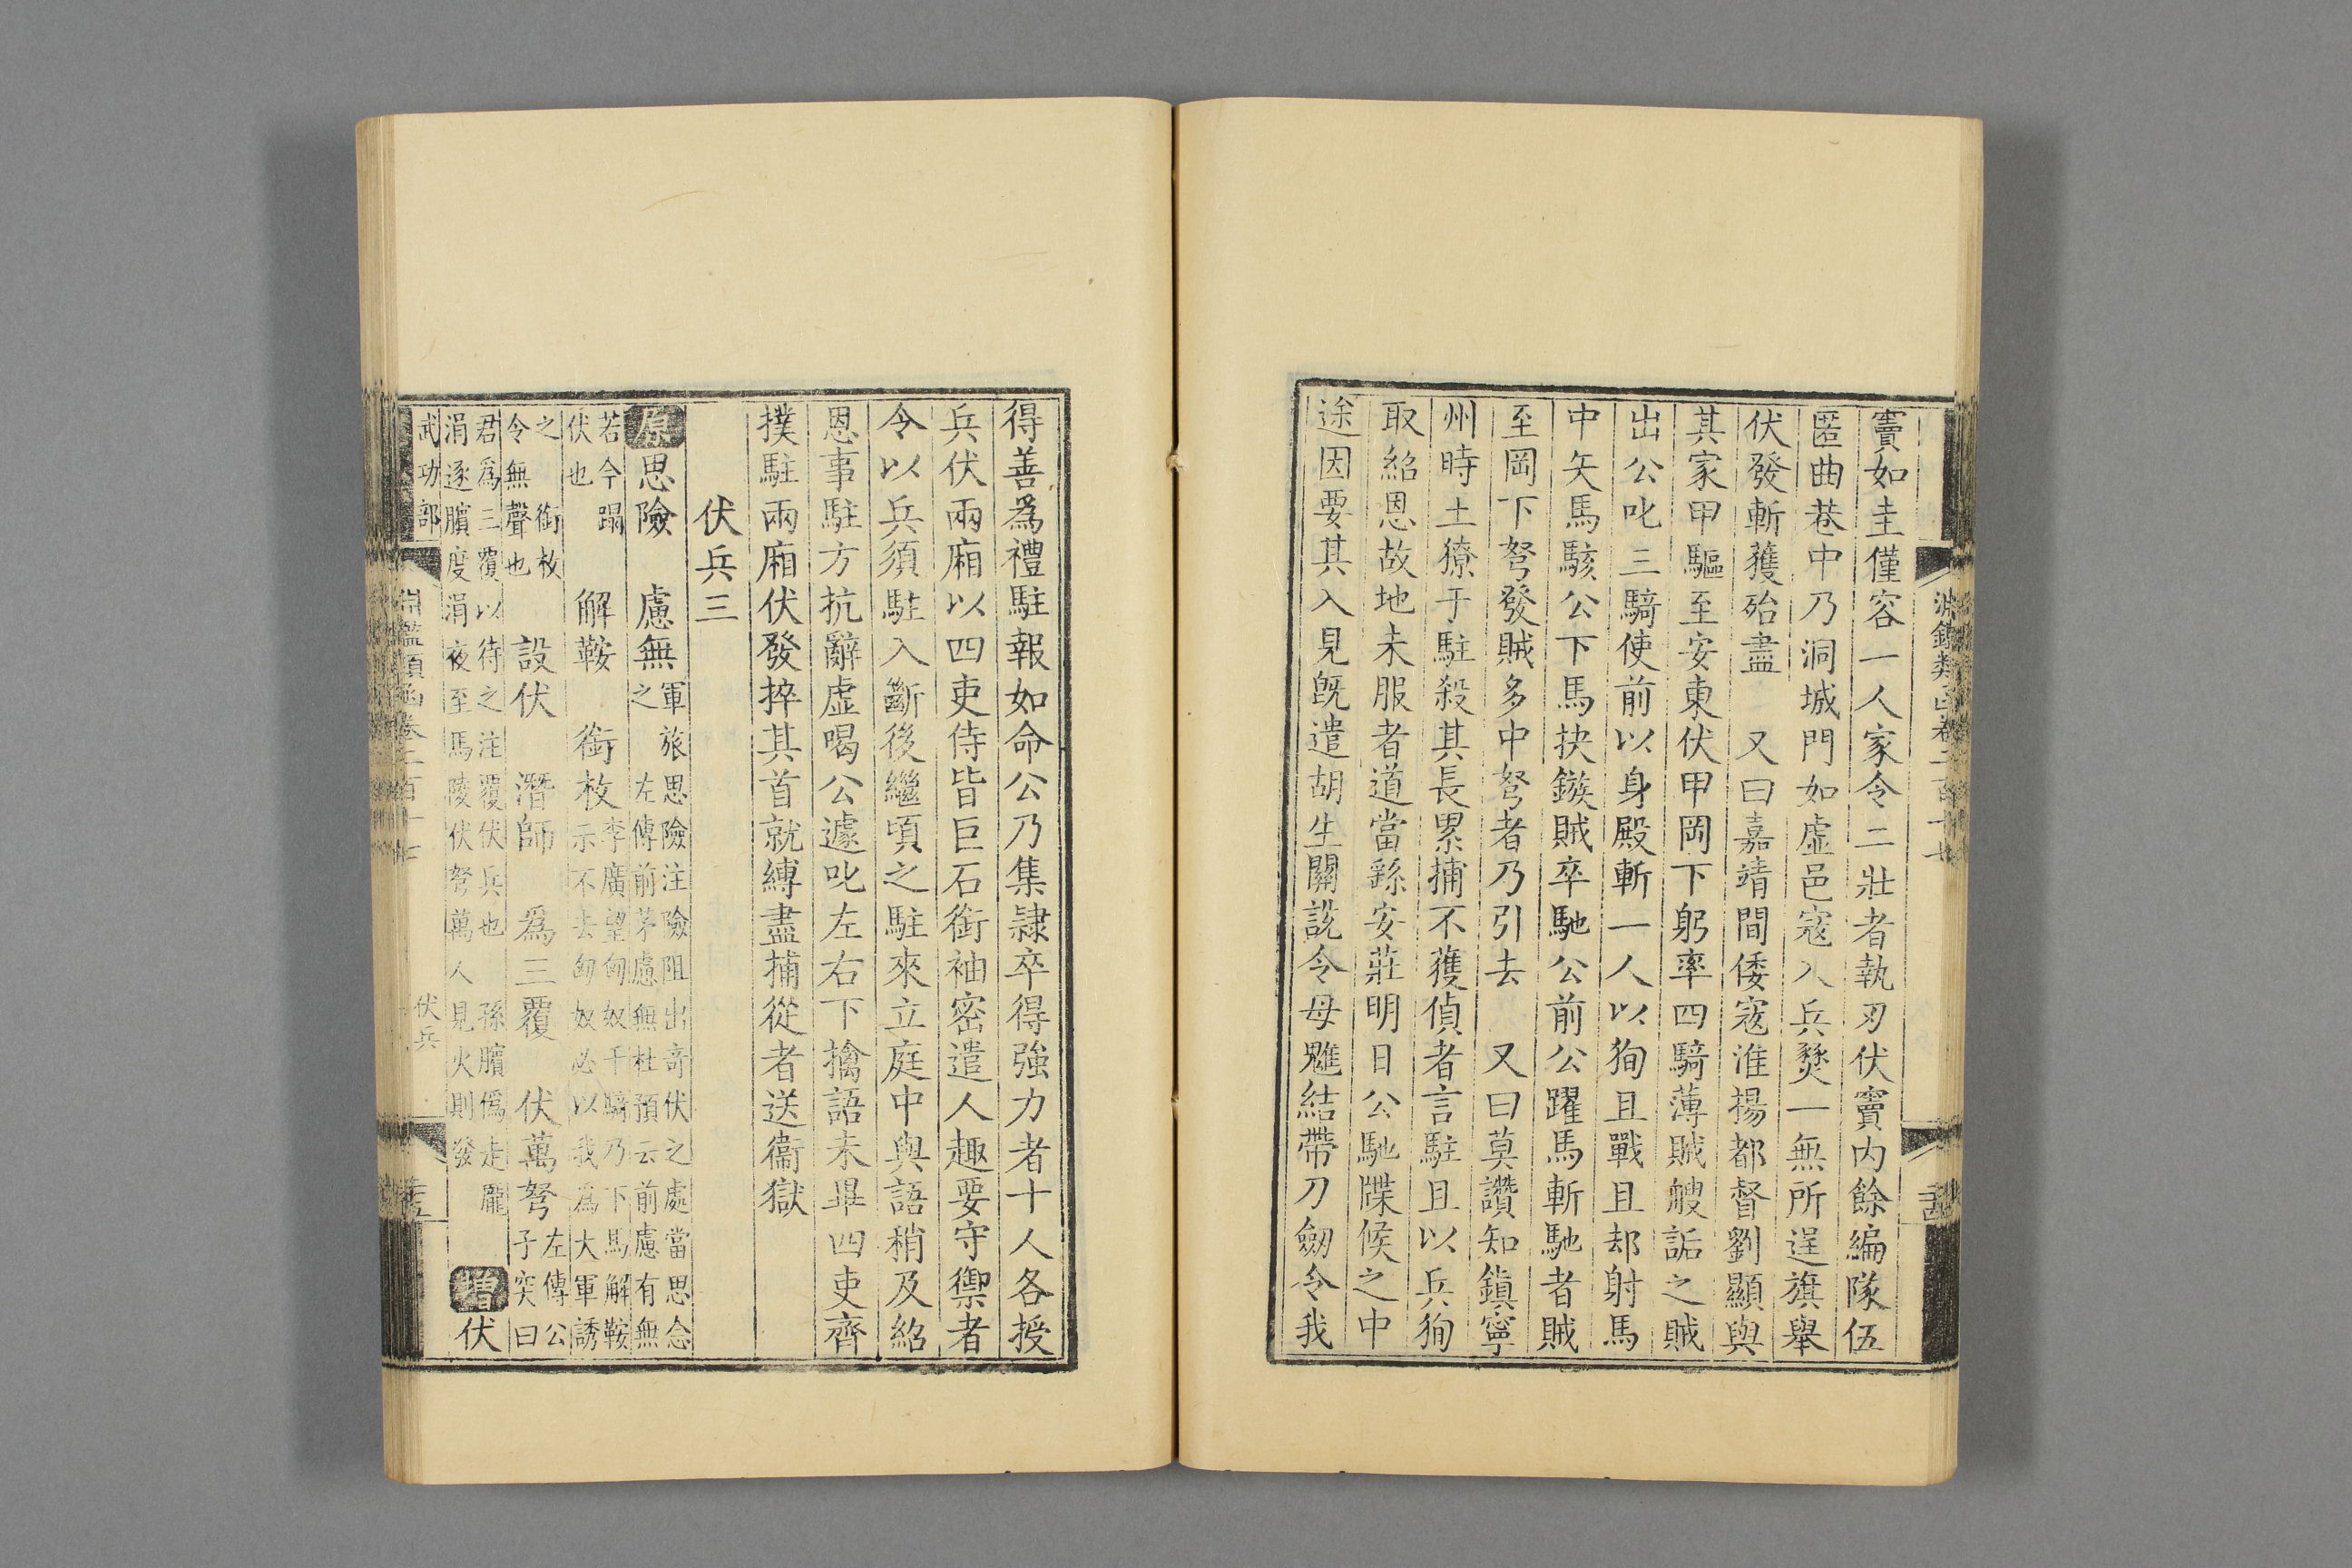 竇如圭僅容一人家令二壯者執刃伏竇内餘編隊伍
匿曲巷中乃洞城門如虛邑寇入兵燹一無所逞旗舉
伏發斬獲殆盡　又曰嘉靖間倭寇淮揚都督劉顯與
其家甲驅至安東伏甲岡下躬率四騎薄賊艘詬之賊
出公叱三騎使前以身殿斬一人以狥且戰且却射馬
中矢馬駭公下馬抉鏃賊卒馳公前公躍馬斬馳者賊
至岡下弩發賊多中弩者乃引去　又曰莫讚知鎮寧
州時土獠于駐殺其長累捕不獲偵者言駐且以兵狥
取紹恩故地未服者道當繇安莊明日公馳牒候之中
途因要其入見旣遣胡生關說令毋魋結帶刀劒令我
得善爲禮駐報如命公乃集隷卒得強力者十人各授
兵伏兩廂以四吏侍皆巨石銜袖密遣人趣要守禦者
令以兵須駐入斷後繼頃之駐來立庭中與語稍及紹
恩事駐方抗辭虛喝公遽叱左右下擒語未畢四吏齊
撲駐兩廂伏發捽其首就縛盡捕從者送衞獄
伏兵三
原思險　慮無軍旅思險注險阻出奇伏之處當思念
之　左傳前茅慮無杜預云前慮有無
若今蹋
伏也　解鞍　銜枚李廣望匈奴千騎乃下馬解鞍
示不去匈奴必以我爲大軍誘
之　銜枚
令無聲也　設伏　潛師　爲三覆　伏萬弩左傳公
子突曰
君爲三覆以待之注覆伏兵也　孫臏僞走龐
涓逐臏度涓夜至馬陵伏弩萬人見火則發　增伏
武功部
淵鑑類函卷二百十七
伏兵